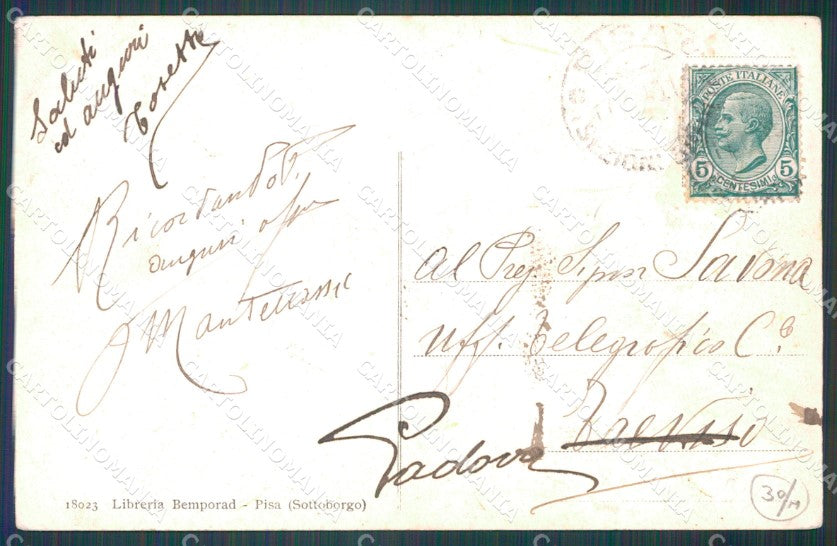 Saluti
ed auguri
Ricordandoti
auguri
POSTE ITALIANE
5 5
CENTESIMI
Al Preg. Signor Savona
Uff. Telegrafico C.le
Treviso
Padova
18023 Libreria Bemporad - Pisa (Sottoborgo)
30/M
CARTOLINOMANIA